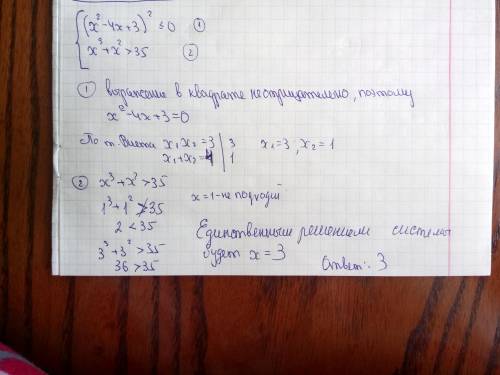 (x²-4x+3)² ≤0 ①
x³+x²>35 ②
① выражение в квадрате неотрицательно, поэтому
x²-4x+3=0
По т. Виета x₁x₂=3 | 3 x₁=3, x₂=1
x₁+x₂=4 | 1
② x³+x²>35
1³+1²≯35 x=1-не подходит
2<35
3³+3²>35
36>35
Единственным решением системы
будет x=3
Ответ: 3